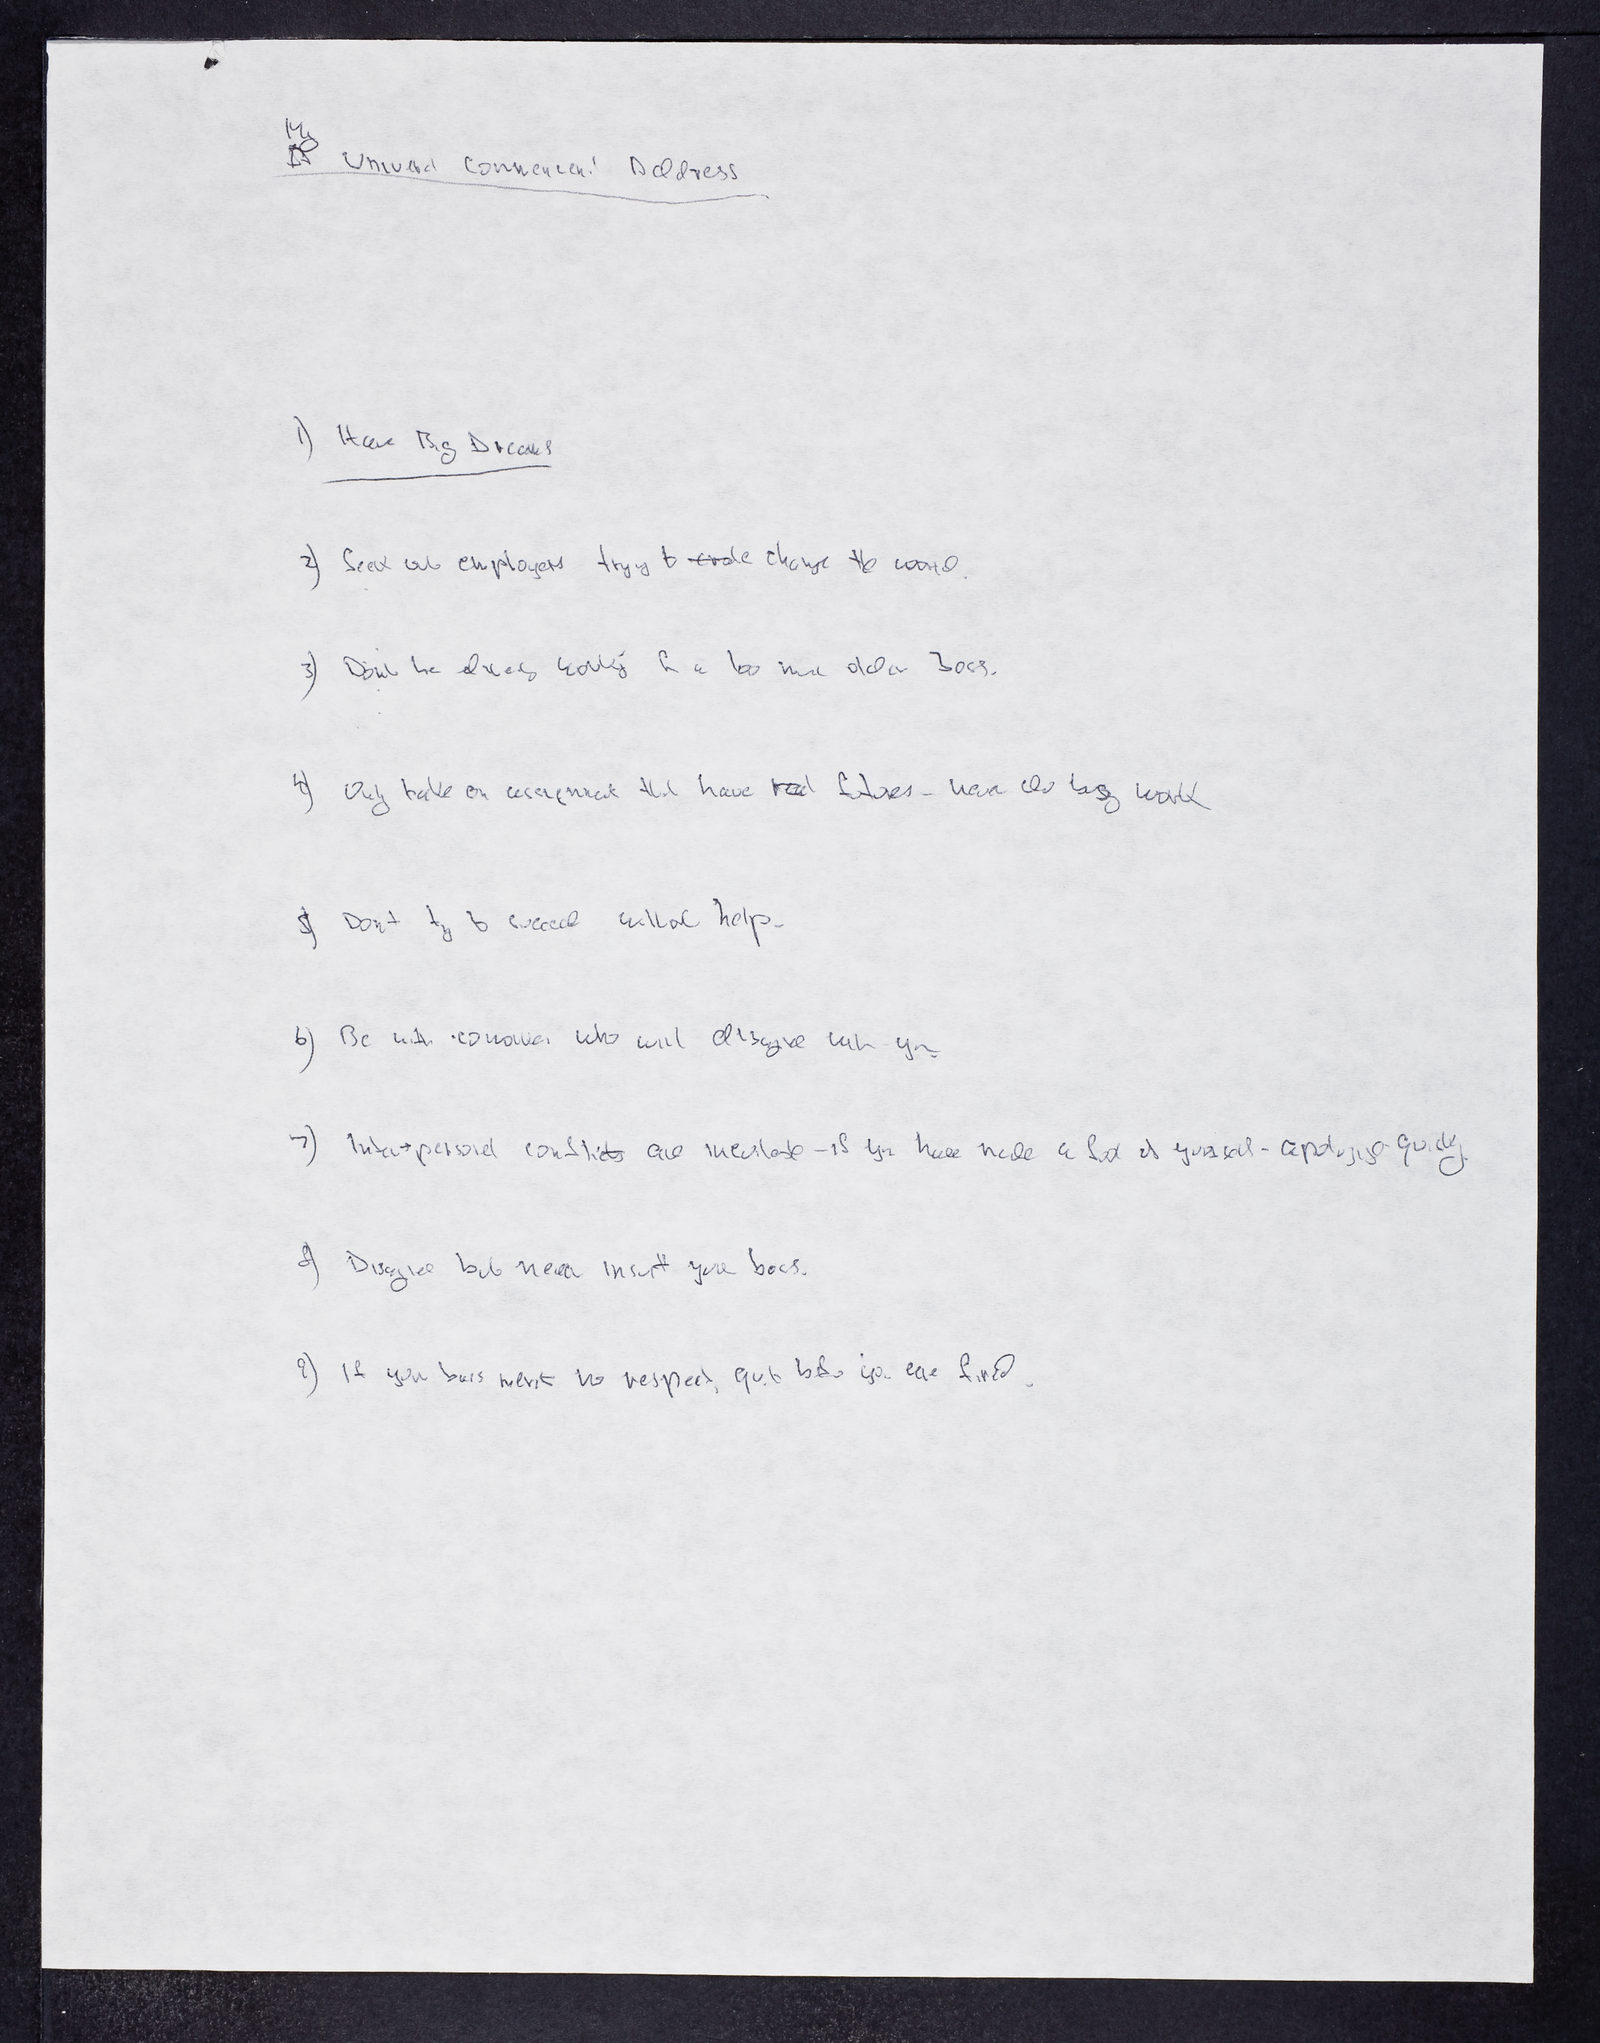 My
Universal Commencement Address
1) Have Big Dreams
2) Seek out employers trying to change the world.
3) Don't be already working for a too much older Boss.
4) Only take on assignments that have real futures - never do busy work
5) Don't try to succeed without help.
6) Be with who will disagree with you.
7) Inter-personal conflicts are inevitable - if you have made a fool of yourself - apologize quickly.
8) Disagree but never insult your boss.
9) If your boss merits no respect, quit before you are fired.